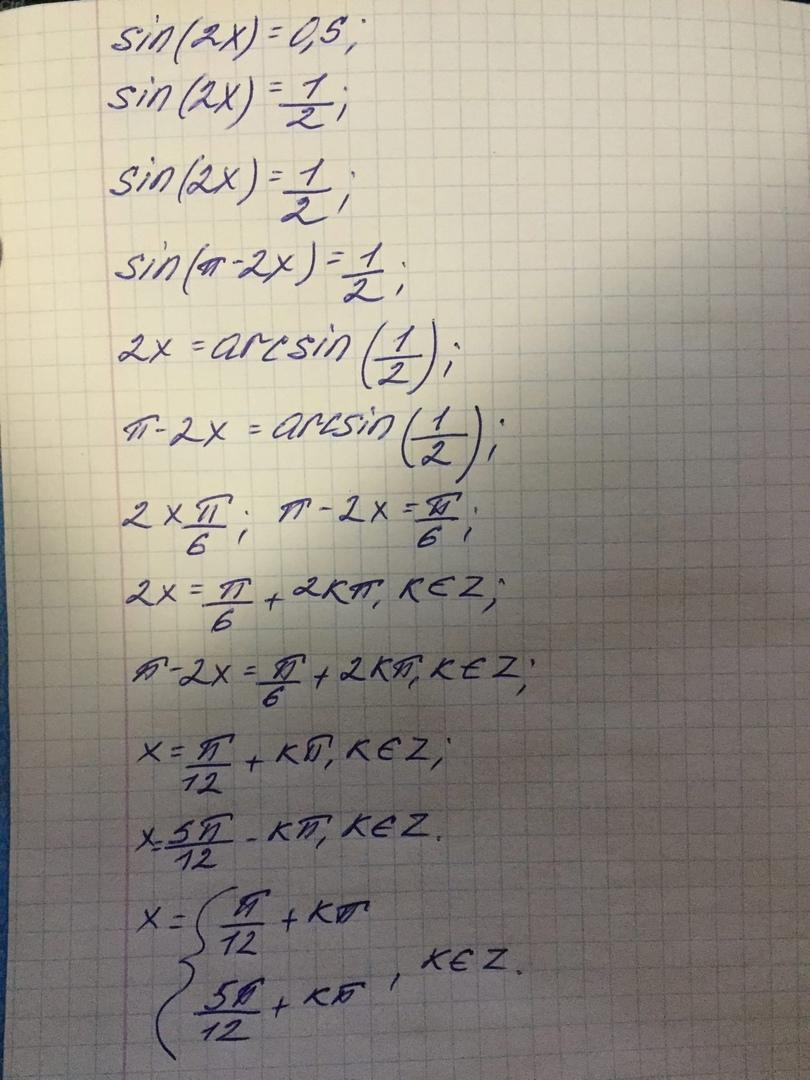 sin(2x)=0,5;
sin(2x)=1/2;
sin(2x)=1/2;
sin(π-2x)=1/2;
2x=arcsin(1/2);
π-2x=arcsin(1/2);
2x π/6; π-2x=π/6;
2x=π/6+2kπ, k∈Z;
π-2x=π/6+2kπ, k∈Z;
x=π/12+kπ, k∈Z;
x=5π/12-kπ, k∈Z.
x={π/12+kπ
{5π/12+kπ, k∈Z.